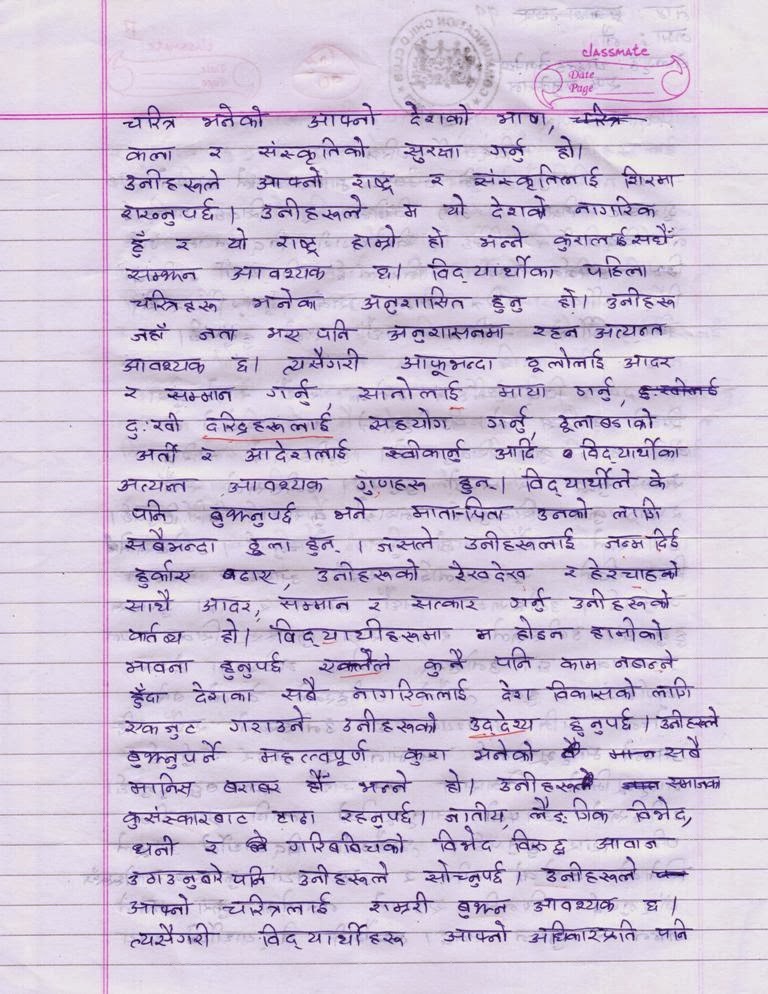 classmate
Date
Page
चरित्र भनेको आफ्नो देशको भाषा, चरित्र
कला र संस्कृतिको सुरक्षा गर्नु हो।
उनीहरूले आफ्नो राष्ट्र र संस्कृतिलाई शिरमा
राख्नुपर्छ। उनीहरूले म यो देशको नागरिक
हुँ र यो राष्ट्र हाम्रो हो भन्ने कुरालाई सधैँ
सम्झन आवश्यक छ। विद्यार्थीका पहिला
चरित्रहरू भनेका अनुशासित हुनु हो। उनीहरू
जहाँ जता भए पनि अनुशासनमा रहन अत्यन्त
आवश्यक छ। त्यसैगरी आफूभन्दा ठूलोलाई आदर
र सम्मान गर्नु, सानोलाई माया गर्नु,
दुःखी दरिद्रहरूलाई सहयोग गर्नु, ठूलाबडाको
अर्ती र आदेशलाई स्वीकार्नु आदि विद्यार्थीका
अत्यन्त आवश्यक गुणहरू हुन्। विद्यार्थीले के
पनि बुझ्नुपर्छ भने माता-पिता उनको लागि
सबैभन्दा ठूला हुन् । जसले उनीहरूलाई जन्म दिई
हुर्काए बढाए, उनीहरूको रेखदेख र हेरचाहको
साथै आदर, सम्मान र सत्कार गर्नु उनीहरूको
कर्तव्य हो। विद्यार्थीहरूमा म होइन हामीको
भावना हुनुपर्छ एक्लैले कुनै पनि काम नबन्ने
हुँदा देशका सबै नागरिकलाई देश विकासको लागि
एकजुट गराउने उनीहरूको उद्देश्य हुनुपर्छ। उनीहरूले
बुझ्नुपर्ने महत्त्वपूर्ण कुरा भनेको सबै
मानिस बराबर हौँ भन्ने हो। उनीहरू समाजका
कुसंस्कारबाट टाढा रहनुपर्छ। जातीय, लैङ्गिक विभेद,
धनी र गरिबबिचको विभेद विरुद्ध आवाज
उठाउनुबारे पनि उनीहरूले सोच्नुपर्छ। उनीहरूले
आफ्नो चरित्रलाई राम्ररी बुझ्न आवश्यक छ।
त्यसैगरी विद्यार्थीहरू आफ्नो अधिकारप्रति पनि